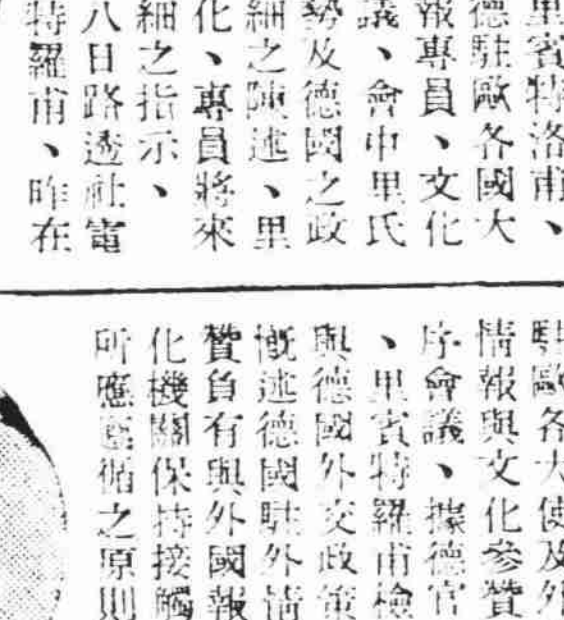 里賓特洛甫、
德駐歐各國大
報專員、文化
議、會中里氏
勢及德國之政
細之陳述、里
化、專員將來
細之指示、
八日路透社電
特羅甫、昨在
駐歐各大使及外
情報與文化參贊
序會議、據德官
、里賓特羅甫檢
與德國外交政策
概述德國駐外情
贊負有與外國報
化機關保持接觸
所應遵循之原則